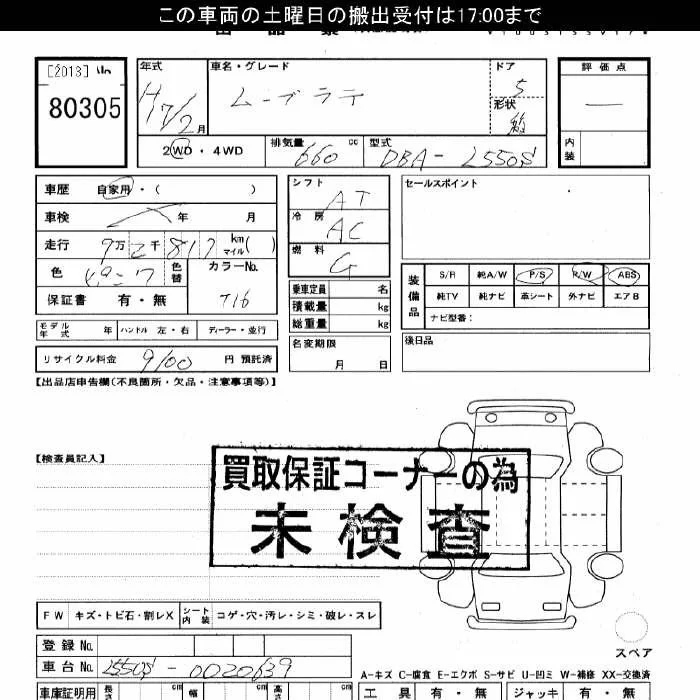 この車両の土曜日の搬出受付は17:00まで
[2013]
80305
年式 H17/2月
車名・グレード ムーブラテ
ドア 5
形状 箱
評価点 —
内装
2WD・4WD
排気量 660 cc
型式 DBA-L550S
車歴 自家用・( )
車検 年 月
走行 9万2千817 km マイル( )
色 ピンク 色替
カラーNo. T16
保証書 有・無
シフト AT
冷房 AC
燃料 G
乗車定員 名
積載量 kg
総重量 kg
名変期限 月 日
セールスポイント
装備品
S/R 純A/W P/S R/W ABS
純TV 純ナビ 革シート 外ナビ エアB
ナビ型番:
モデル年式 年 ハンドル 左・右 ディーラー・並行
後日品
リサイクル料金 9100 円 預託済
【出品店申告欄(不良箇所・欠品・注意事項等)】
【検査員記入】
買取保証コーナーの為
未検査
FW キズ・トビ石・割レX シート内装 コゲ・穴・汚レ・シミ・破レ・スレ
スペア
登録No.
車台No. L550S-0020639
A-キズ C-腐食 E-エクボ S-サビ U-凹ミ W-補修 XX-交換済
車庫証明用 長さ cm 幅 cm 高さ cm
工具 有・無 ジャッキ 有・無